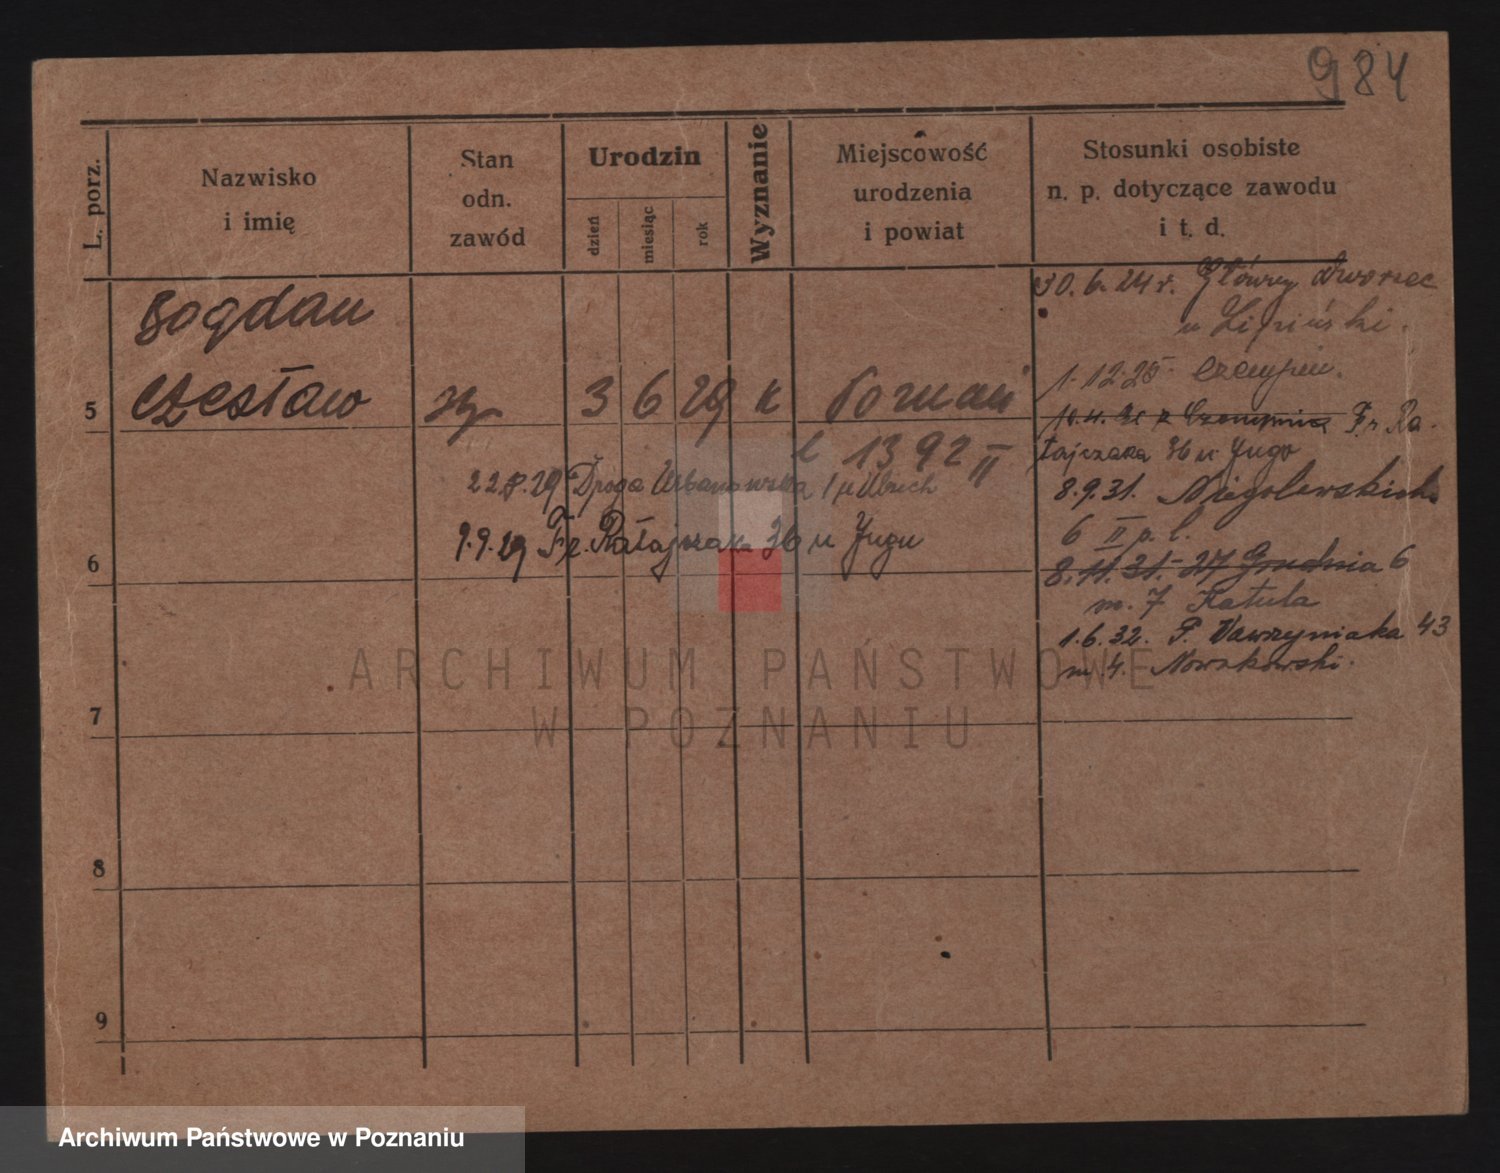 984
L. porz.
Nazwisko
i imię
Stan
odn.
zawód
Urodzin
dzień
miesiąc
rok
Wyznanie
Miejscowość
urodzenia
i powiat
Stosunki osobiste
n. p. dotyczące zawodu
i t. d.
30.6.24 r. Główny Dworzec
u Lipiński.
Bogdan
1.12.25 Czempiń.
5 Czesław 3 6 29 k Poznań
10.4. z Czempinia Fr. Ra-
tajczaka 36 u Jugo
1392 II
22.8.29 Droga Urbanowska 1 u
8.9.31. Niegolewskich
6 II p. l.
9.9.29 Fr. Ratajczaka 36 u Jugu
6
8.11.31. 27 Grudnia 6
m. 7 Katula
1.6.32. P. Wawrzyniaka 43
m 4. Nowakowski.
7
8
9
ARCHIWUM PAŃSTWOWE
W POZNANIU
Archiwum Państwowe w Poznaniu